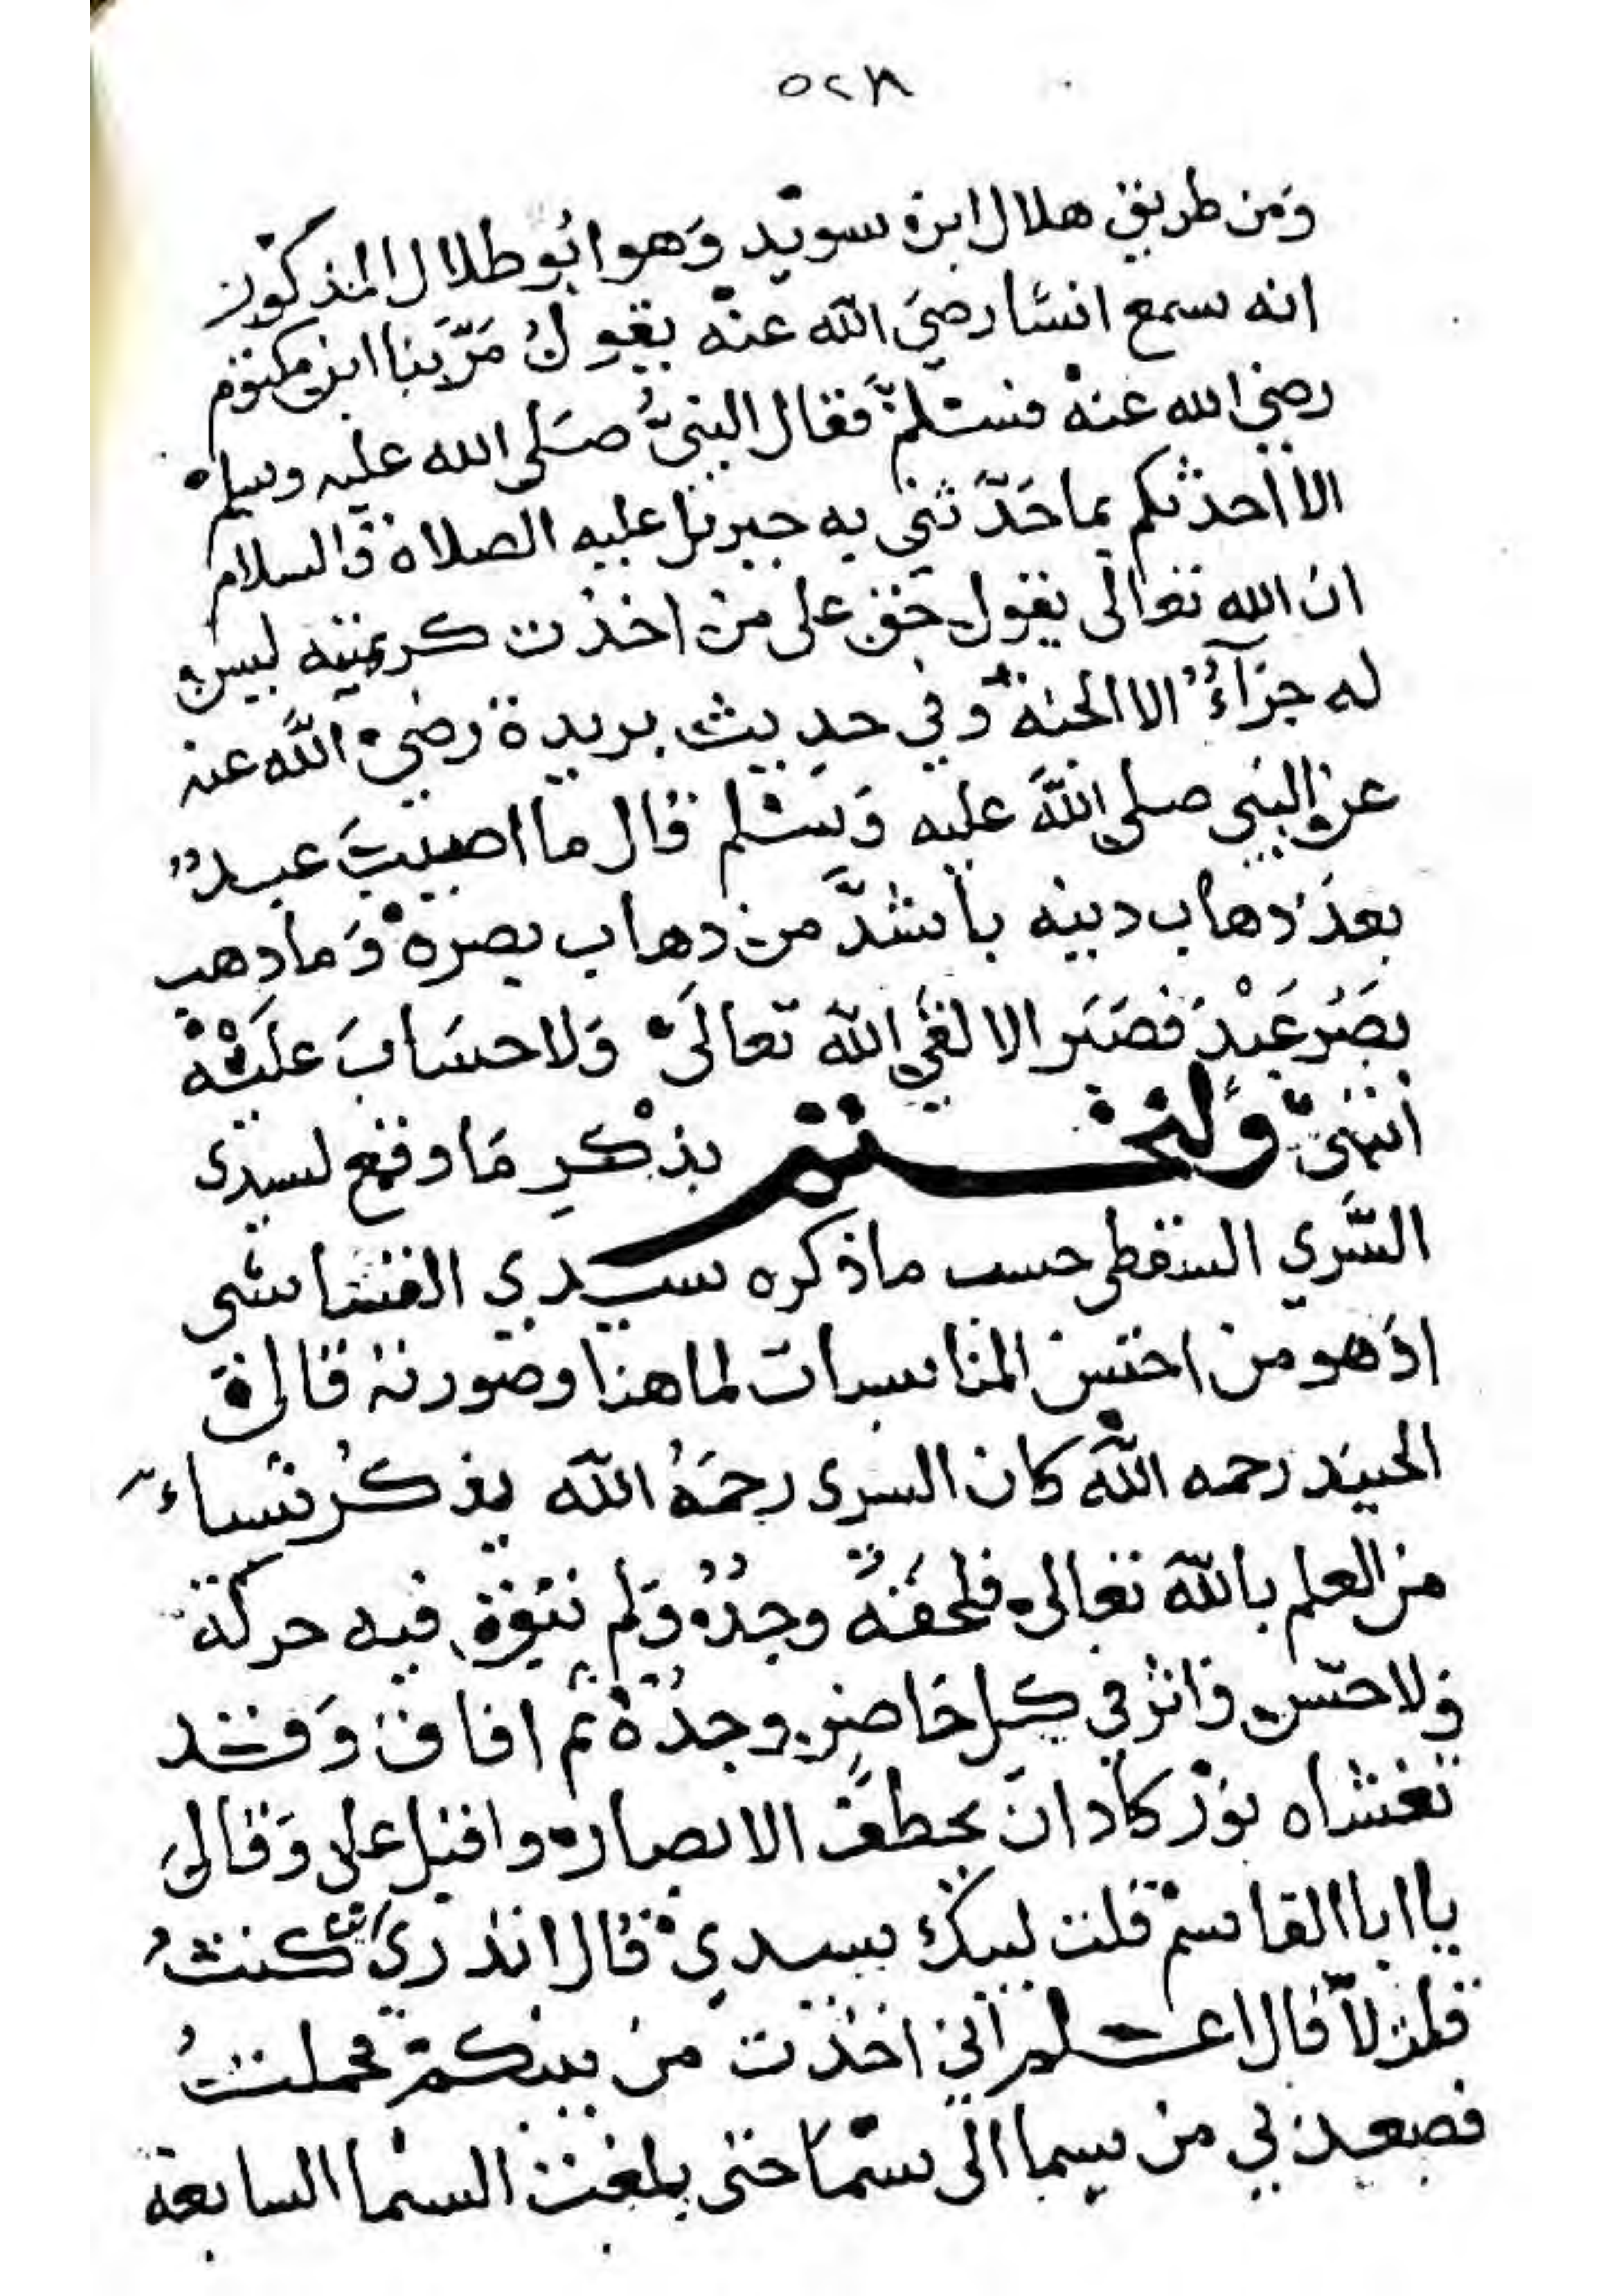 ٥٢٨
وَمن طريق هلال ابن سويد وَهو ابو ظلال المذكور
انه سمع انسًا رضيَ اللّه عنه يقولُ مَرَّ بنا ابن مكتوم
رضي الله عنه فسلم فقال النبيُّ صَلى الله عليه وسلم
الا احدثكم بما حَدَّثني به جبريل عليه الصلاة والسلام
ان الله تعالى يقول حق على من اخذت كريمتيه ليس
له جزآءٌ الا الجنة وفي حديث بريدة رضي اللّه عنه
عن النبي صلى اللّه عليه وَسلم قال ما اصيبَ عبدٌ
بعدَ دهاب دينه باشدَّ من دهاب بصره وَما دهب
بصَرُ عَبْدٍ فصَبَر الا لقي اللّه تعالَى وَلا حسَابَ علَيْه
انتهى وَلنختتم بذْكرِ مَا وقع لسيدى
السَّري السقطي حسب ما ذكره سيدي القشاشى
اذ هو من احسن المناسبات لما هنا وصورته قال
الجنيد رحمه اللّه كان السرى رحمَهُ اللّه يذكرُ شياءً
من العلم باللّه تعالى فلحقه وجدٌ وَلم تبق فيه حركة
وَلا حسّ واثر في كل حَاضرٍ وجدُه ثم افاق وَقد
تغشاه نورٌ كاد ان يخطف الابصار واقبل على وَقال
يا ابا القاسم قلت لبيك سيدي قال اتدري اين كنتُ
قلت لا قال اعلم اني اخذت من بينكم فحملتُ
فصعد بي من سما الى سمَا حتى بلغت السما السابعة